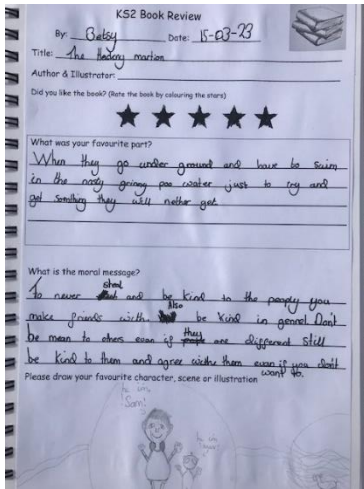 KS2 Book Review
By: Betsy Date: 15-03-23
Title: The
Author & Illustrator:
Did you like the book? (Rate the book by colouring the stars)
What was your favourite part?
When they go under ground and have to swim
in the poo water just to try and
get something they will nether get
What is the moral message?
To never and be kind to the people you
Also
make friends withe be kind in Don't
they
be mean to others evan if are different still
be kind to them and agree withe them evan if you don't
want to.
Please draw your favourite character, scene or illustration
hi im
Sam!
hi im